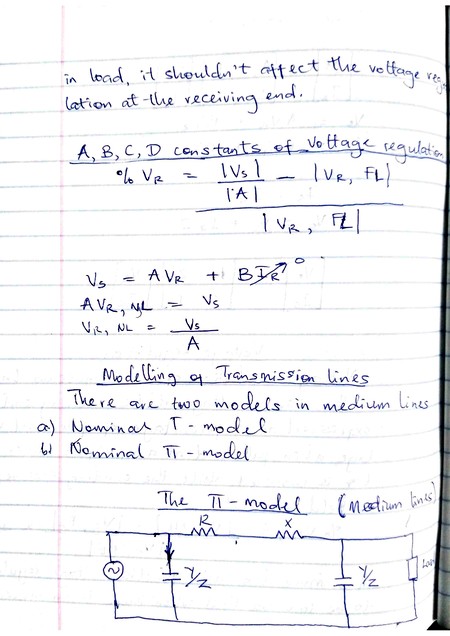 in load, it shouldn't affect the voltage regu
lation at the receiving end.
A, B, C, D constants of voltage regulation
% VR = |Vs| / |A| - |VR, FL|
|VR, FL|
Vs = AVR + BIR 0
AVR, NL = Vs
VR, NL = Vs / A
Modelling of Transmission lines
There are two models in medium lines
a) Nominal T - model
b) Nominal π - model
The π - model (Medium lines)
R X
Y/2 Y/2 Load